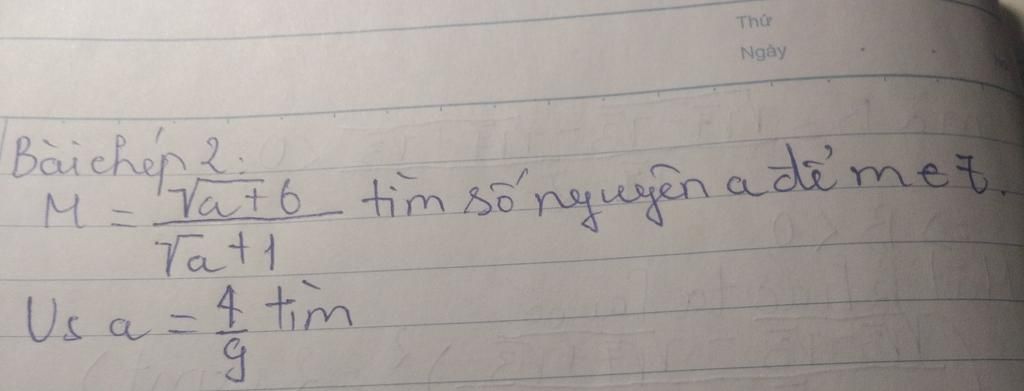 Thứ
Ngày
Bài chép 2:
M = \frac{\sqrt{a}+6}{\sqrt{a}+1} tìm số nguyên a để m e z.
Vs a = \frac{4}{9} tìm